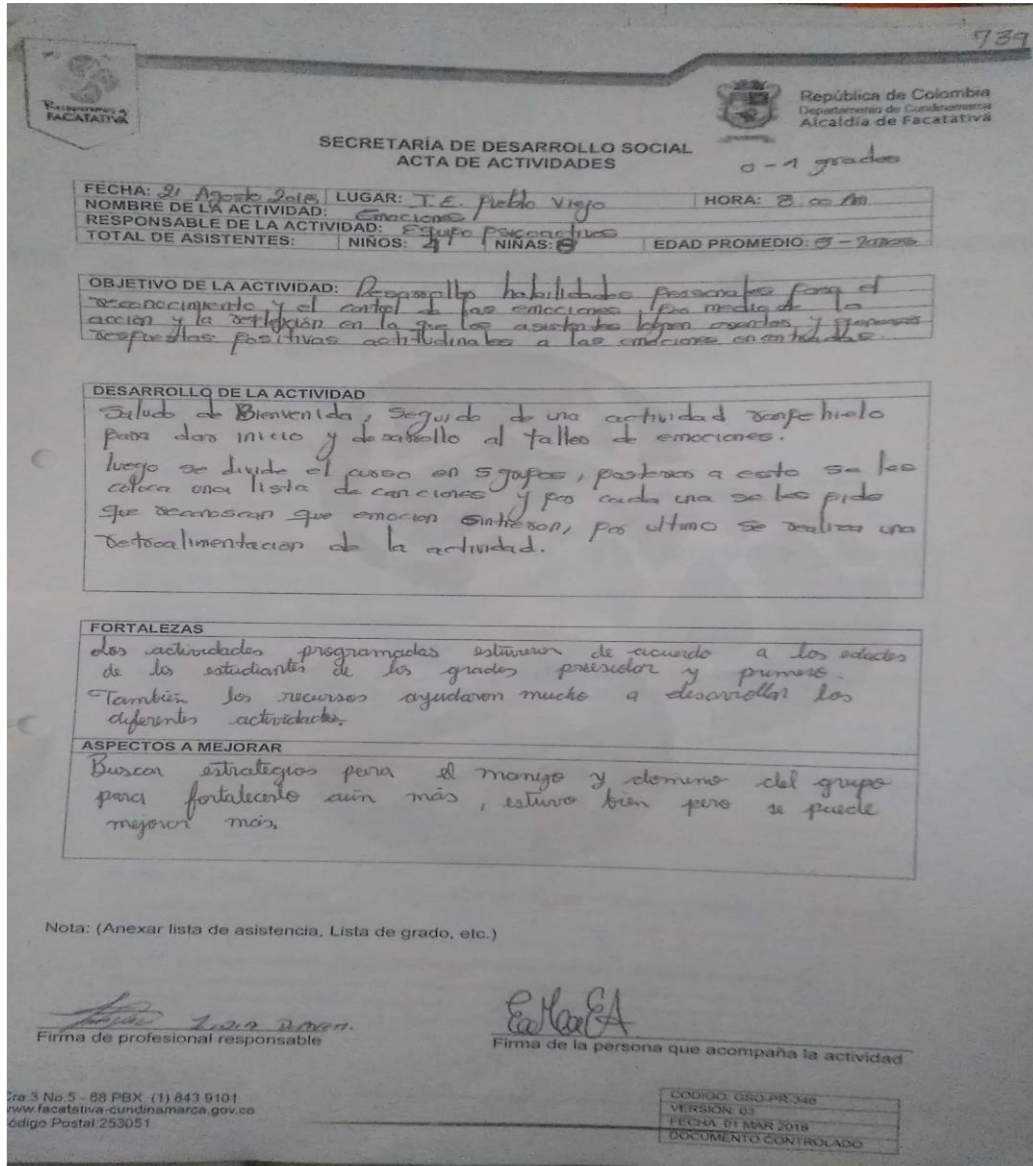 739
Recuperemos a
FACATATIVÁ
República de Colombia
Departamento de Cundinamarca
Alcaldía de Facatativá
SECRETARÍA DE DESARROLLO SOCIAL
ACTA DE ACTIVIDADES
0-1 grados
FECHA: 21 Agosto LUGAR: I.E. Pueblo Viejo HORA: 8:00 Am
NOMBRE DE LA ACTIVIDAD: Emociones
RESPONSABLE DE LA ACTIVIDAD: Equipo Psicoactivos
TOTAL DE ASISTENTES: NIÑOS: 4 NIÑAS: 8 EDAD PROMEDIO: 5 -
OBJETIVO DE LA ACTIVIDAD: habilidades personales para el
reconocimiento y el control de las emociones por medio de la
acción y la reflexión en la que los asistentes logren y
respuestas positivas actitudinales a las emociones encontradas.
DESARROLLO DE LA ACTIVIDAD
Saludo de Bienvenida, seguido de una actividad rompehielo
para dar inicio y desarrollo al taller de emociones.
luego se divide el curso en 5 grupos, posterior a esto se les
coloca una lista de canciones y por cada una se les pide
que reconoscan que emocion sintieron, por ultimo se realiza una
retroalimentacion de la actividad.
FORTALEZAS
Las actividades programadas estuvieron de acuerdo a las edades
de los estudiantes de los grados preescolar y primero.
También los recursos ayudaron mucho a desarrollar las
diferentes actividades.
ASPECTOS A MEJORAR
Buscar estrategias para el manejo y dominio del grupo
para fortalecerlo aún más, estuvo bien pero se puede
mejorar más.
Nota: (Anexar lista de asistencia, Lista de grado, etc.)
Firma de profesional responsable
Firma de la persona que acompaña la actividad
Cra 3 No.5 - 68 PBX. (1) 843 9101
www.facatativa-cundinamarca.gov.co
código Postal 253051
CODIGO: GSO-PR-346
VERSIÓN: 03
FECHA: 01 MAR 2018
DOCUMENTO CONTROLADO